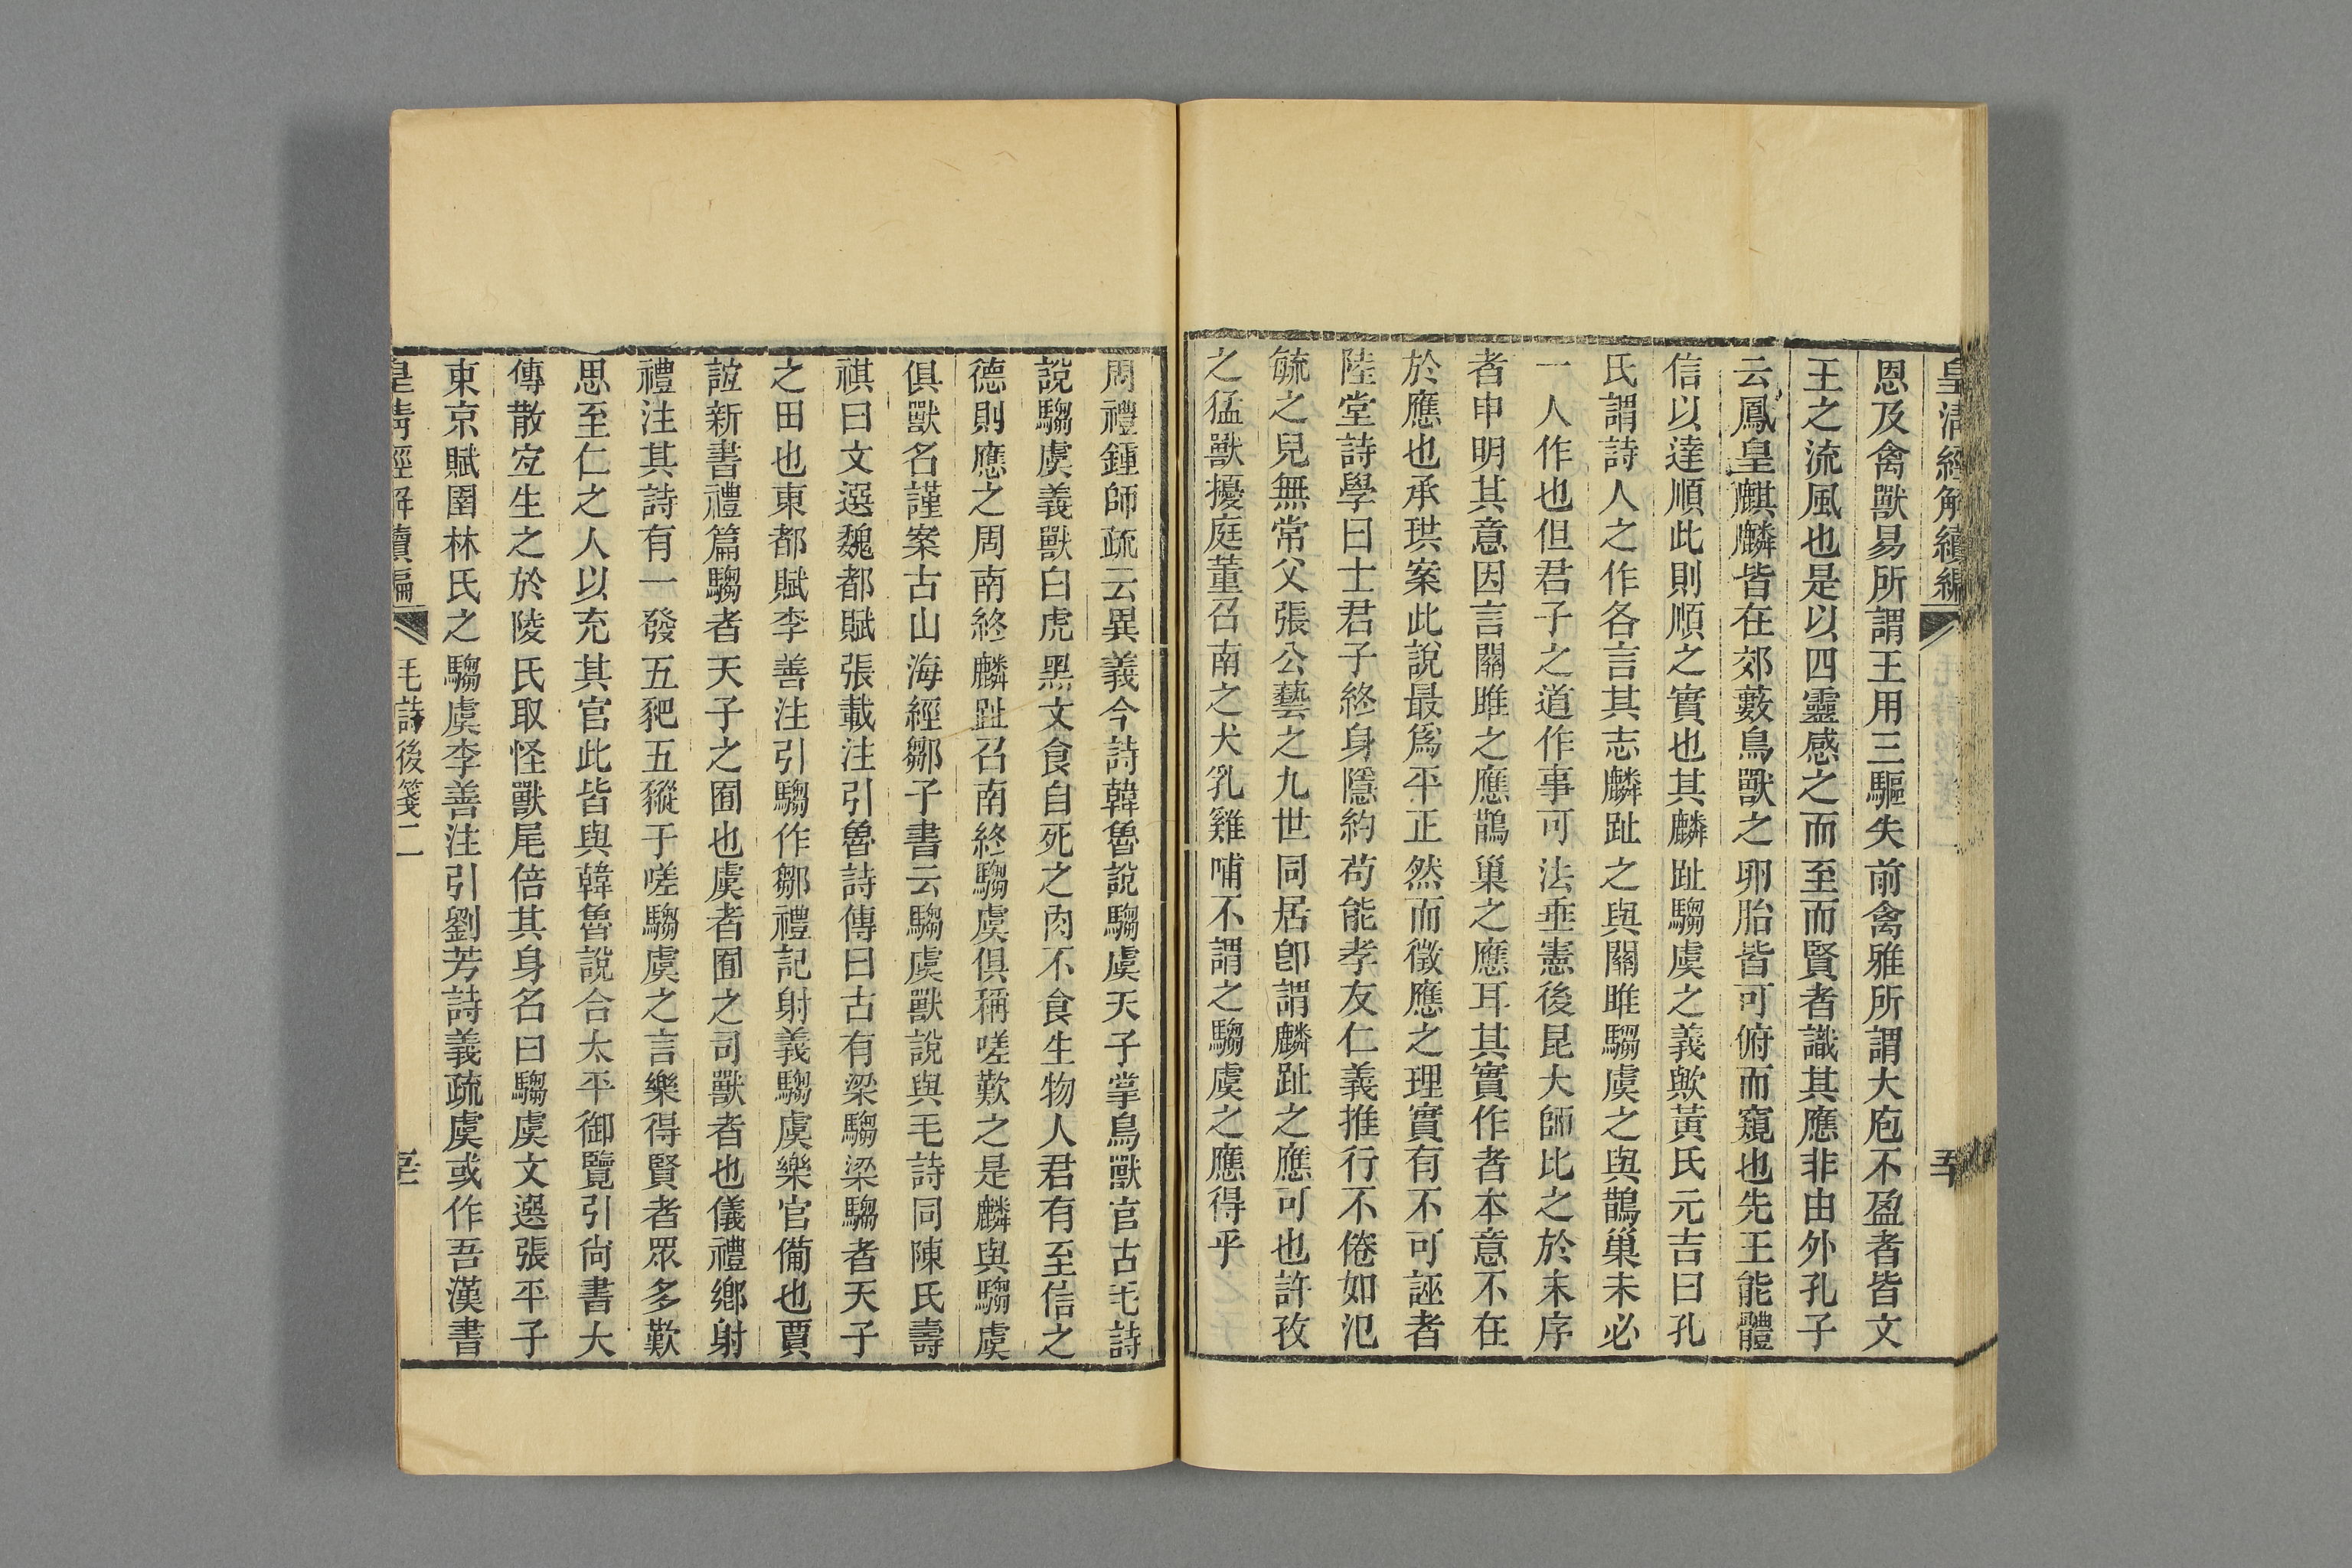 皇清經解續編
恩及禽獸易所謂王用三驅失前禽雅所謂大庖不盈者皆文
王之流風也是以四靈感之而至而賢者識其應非由外孔子
云鳳皇麒麟皆在郊藪鳥獸之卵胎皆可俯而窺也先王能體
信以達順此則順之實也其麟趾騶虞之義歟黃氏元吉曰孔
氏謂詩人之作各言其志麟趾之與關雎騶虞之與鵲巢未必
一人作也但君子之道作事可法垂憲後昆大師比之於末序
者申明其意因言關雎之應鵲巢之應耳其實作者本意不在
於應也承珙案此說最爲平正然而徵應之理實有不可誣者
陸堂詩學曰士君子終身隱約苟能孝友仁義推行不倦如氾
毓之兒無常父張公藝之九世同居卽謂麟趾之應可也許孜
之猛獸擾庭董召南之犬乳雞哺不謂之騶虞之應得乎
周禮鍾師疏云異義今詩韓魯說騶虞天子掌鳥獸官古毛詩
說騶虞義獸白虎黑文食自死之肉不食生物人君有至信之
德則應之周南終麟趾召南終騶虞俱稱嗟歎之是麟與騶虞
俱獸名謹案古山海經鄒子書云騶虞獸說與毛詩同陳氏壽
祺曰文選魏都賦張載注引魯詩傳曰古有梁騶梁騶者天子
之田也東都賦李善注引騶作鄒禮記射義騶虞樂官備也賈
誼新書禮篇騶者天子之囿也虞者囿之司獸者也儀禮鄉射
禮注其詩有一發五豝五豵于嗟騶虞之言樂得賢者眾多歎
思至仁之人以充其官此皆與韓魯說合太平御覽引尙書大
傳散宜生之於陵氏取怪獸尾倍其身名曰騶虞文選張平子
東京賦圉林氏之騶虞李善注引劉芳詩義疏虞或作吾漢書
皇清經解續編
毛詩後箋二